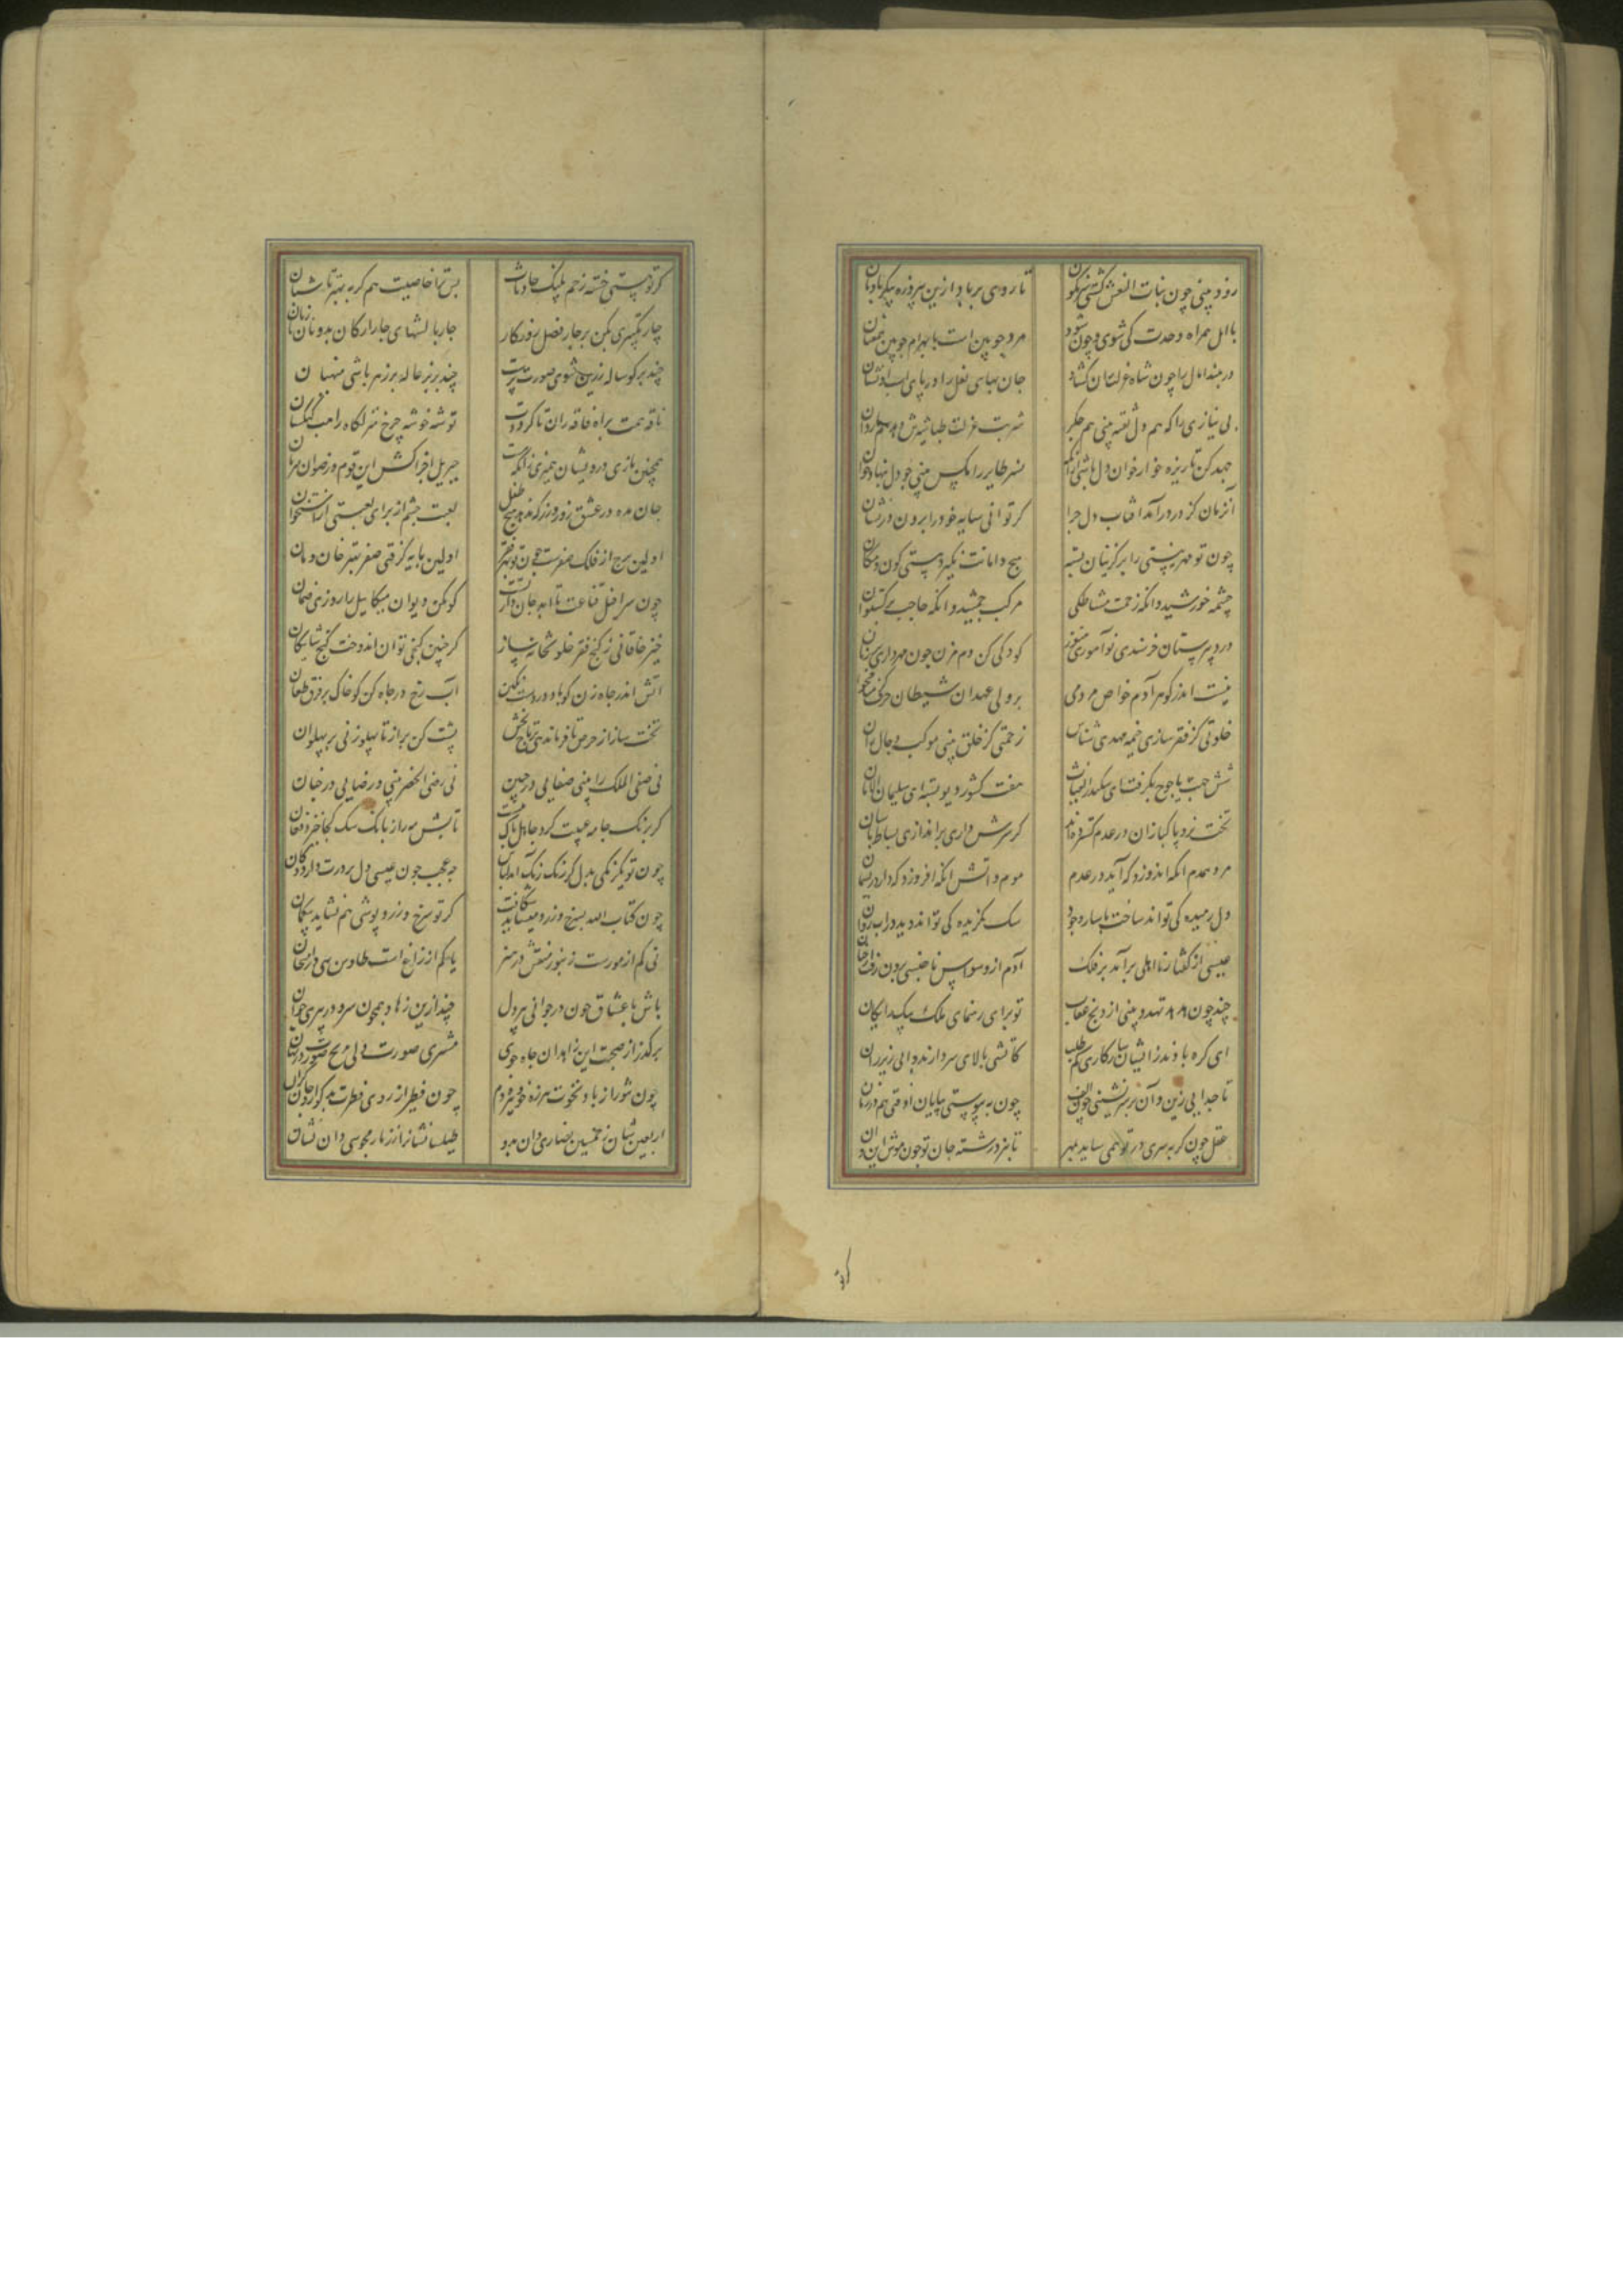 زود بینی چون بنات النعش کشتی سرنگون تا روی بر باد ازین پیروزه پیکر بادبان
با امل همراه وحدت کی شوی چون شود مرد چوبین است با بهرام چوبین همعنان
در ببند آمال را چون شاه عزلت جان کشاد جان بهای نعل را در پای اسب او فشان
بی نیازی را که هم دل تفته بینی هم جگر شربت عزلت
جهد کن تا ریزه خوار خوان دل باشی از انک نسر طایر را مکس بینی چو دل بنهاد خوان
آنزمان کز در درآمد آفتاب دل ترا کر توانی سایه خود را برون در نشان
چون تو مهر نیستی را بر گریبان بسته هیچ دامانت نگیرد هستی کون و مکان
چشمه خورشید و انکه زحمت مشاطکی مرکب جمشید و انکه حاجب برکستوان
در دبیرستان خرسندی نوآموزی هنوز کودکی کن دم مزن چون مهر داری بر زبان
نیست اندر گوهر آدم خواص مردمی بر ولی عهدان شیطان حرف منا مخوان
خلوتی کز فقر سازی خیمه مهدی شناس زحمتی کز خلق بینی موکب دجال دان
شش جهت یاجوج بکرفت ای سکندر الغیاث هفت کشور دیو بستد ای سلیمان الامان
تخت نرد پاکبازان در عدم کسترده اند کر سرش داری برانداز این بساط باستان
مرد همدم آنکه اندوزد که آید در عدم موم و آتش آنکه افروزد که دارد ریسمان
دل رمیده کی تواند ساخت با ساز وجود سک کزیده کی تواند دید در آب روان
عیسی از گفتار نا اهلی برآمد بر فلک آدم از وسواس ناجنسی برون رفت از جنان
چند چون هدهد تهدد بینی از رنج عقاب تو برای رهنمای ملک پیک رایکان
ای کره باد زند از ایشان سازکاری کم طلب کاتشی بالای سر دارند و آبی زیر ران
تا جدایی زین و آن بر سر نشینی چون الف چون بپیوستی بپایان اوفتی هم در زمان
عقل چون کربه سری در تو همی ساید بمهر تا نبرد رشته جان تو چون موش این و آن
کر تو هستی خسته زخم پلنک حادثات پس ترا خاصیت هم کربه بهتر تا سنان
چار تکبیری بکن بر چار فصل روزکار چار بالشهای چار ارکان بدونان باز مان
چند بر کوساله زرین شوی صورت پرست چند بر بزغاله پر زهر باشی میهمان
ناقه همت براه فاقه ران تا کرددت توشه خوشه چرخ و منزلگاه راهت کهکشان
همچنین بازی درویشان همی زی زانکه جبریل اجراکش این قوم و رضوان میزبان
جان مده در عشق زور و زر که ندهد هیچ طفل لعبت چشم از برای لعبتی از استخوان
اولین برج از فلک صفرست چون تو بهر فقر اولین پایه گرفتی صفر بهتر خان و مان
چون سرافیل قناعت تا ابد جاندار تست کو مکن دیوان میکائیل را روزی ضمان
خیز خاقانی ز کنج فقر خلوتخانه ساز کز چنین کنجی توان اندوخت کنج شایکان
آتش اندر جاه زن کو باد در دست نگین آب رخ در چاه کن کو خاک بر فرق طغان
تخت ساز از حرص تا فرمان دهی بر تاج بخش پشت کن بر آز تا پهلو زنی بر پهلوان
نی صفی الملک را بینی صفایی در جبین نی رضی الخضر بینی در رضایی در جنان
کر برنک جامه عیبت کرد جاهل باک نیست تابش مه را ز بانک سک کجا خیزد فغان
چون تو یکرنکی بدل کر رنک رنک آمد لباس چه عجب چون عیسی دل بر درت دارد دکان
چون کتاب الله بسرخ و زرد میشاید نکاشت کر تو سرخ و زرد پوشی هم نشاید بیکمان
نی کم از مورست زنبور منقش در هنر یا کم از زاغ است طاوس بهی در امتحان
باش با عشاق چون کل در جوانی پیر دل چند ازین زهاد همچون سرو در پیری جوان
برکذر از صحبت این زاهدان جاه جوی مشتری صورت ولی مریخ صورت در نهان
چون تنور از باد نخوت هرزه خوار و تیزدم چون فطیر از روی فطرت بد گوار و جان گران
اربعین‌شان ز خمسین نصاری دان بدو طیلسانشانرا ز زنار مجوسی دان نشان